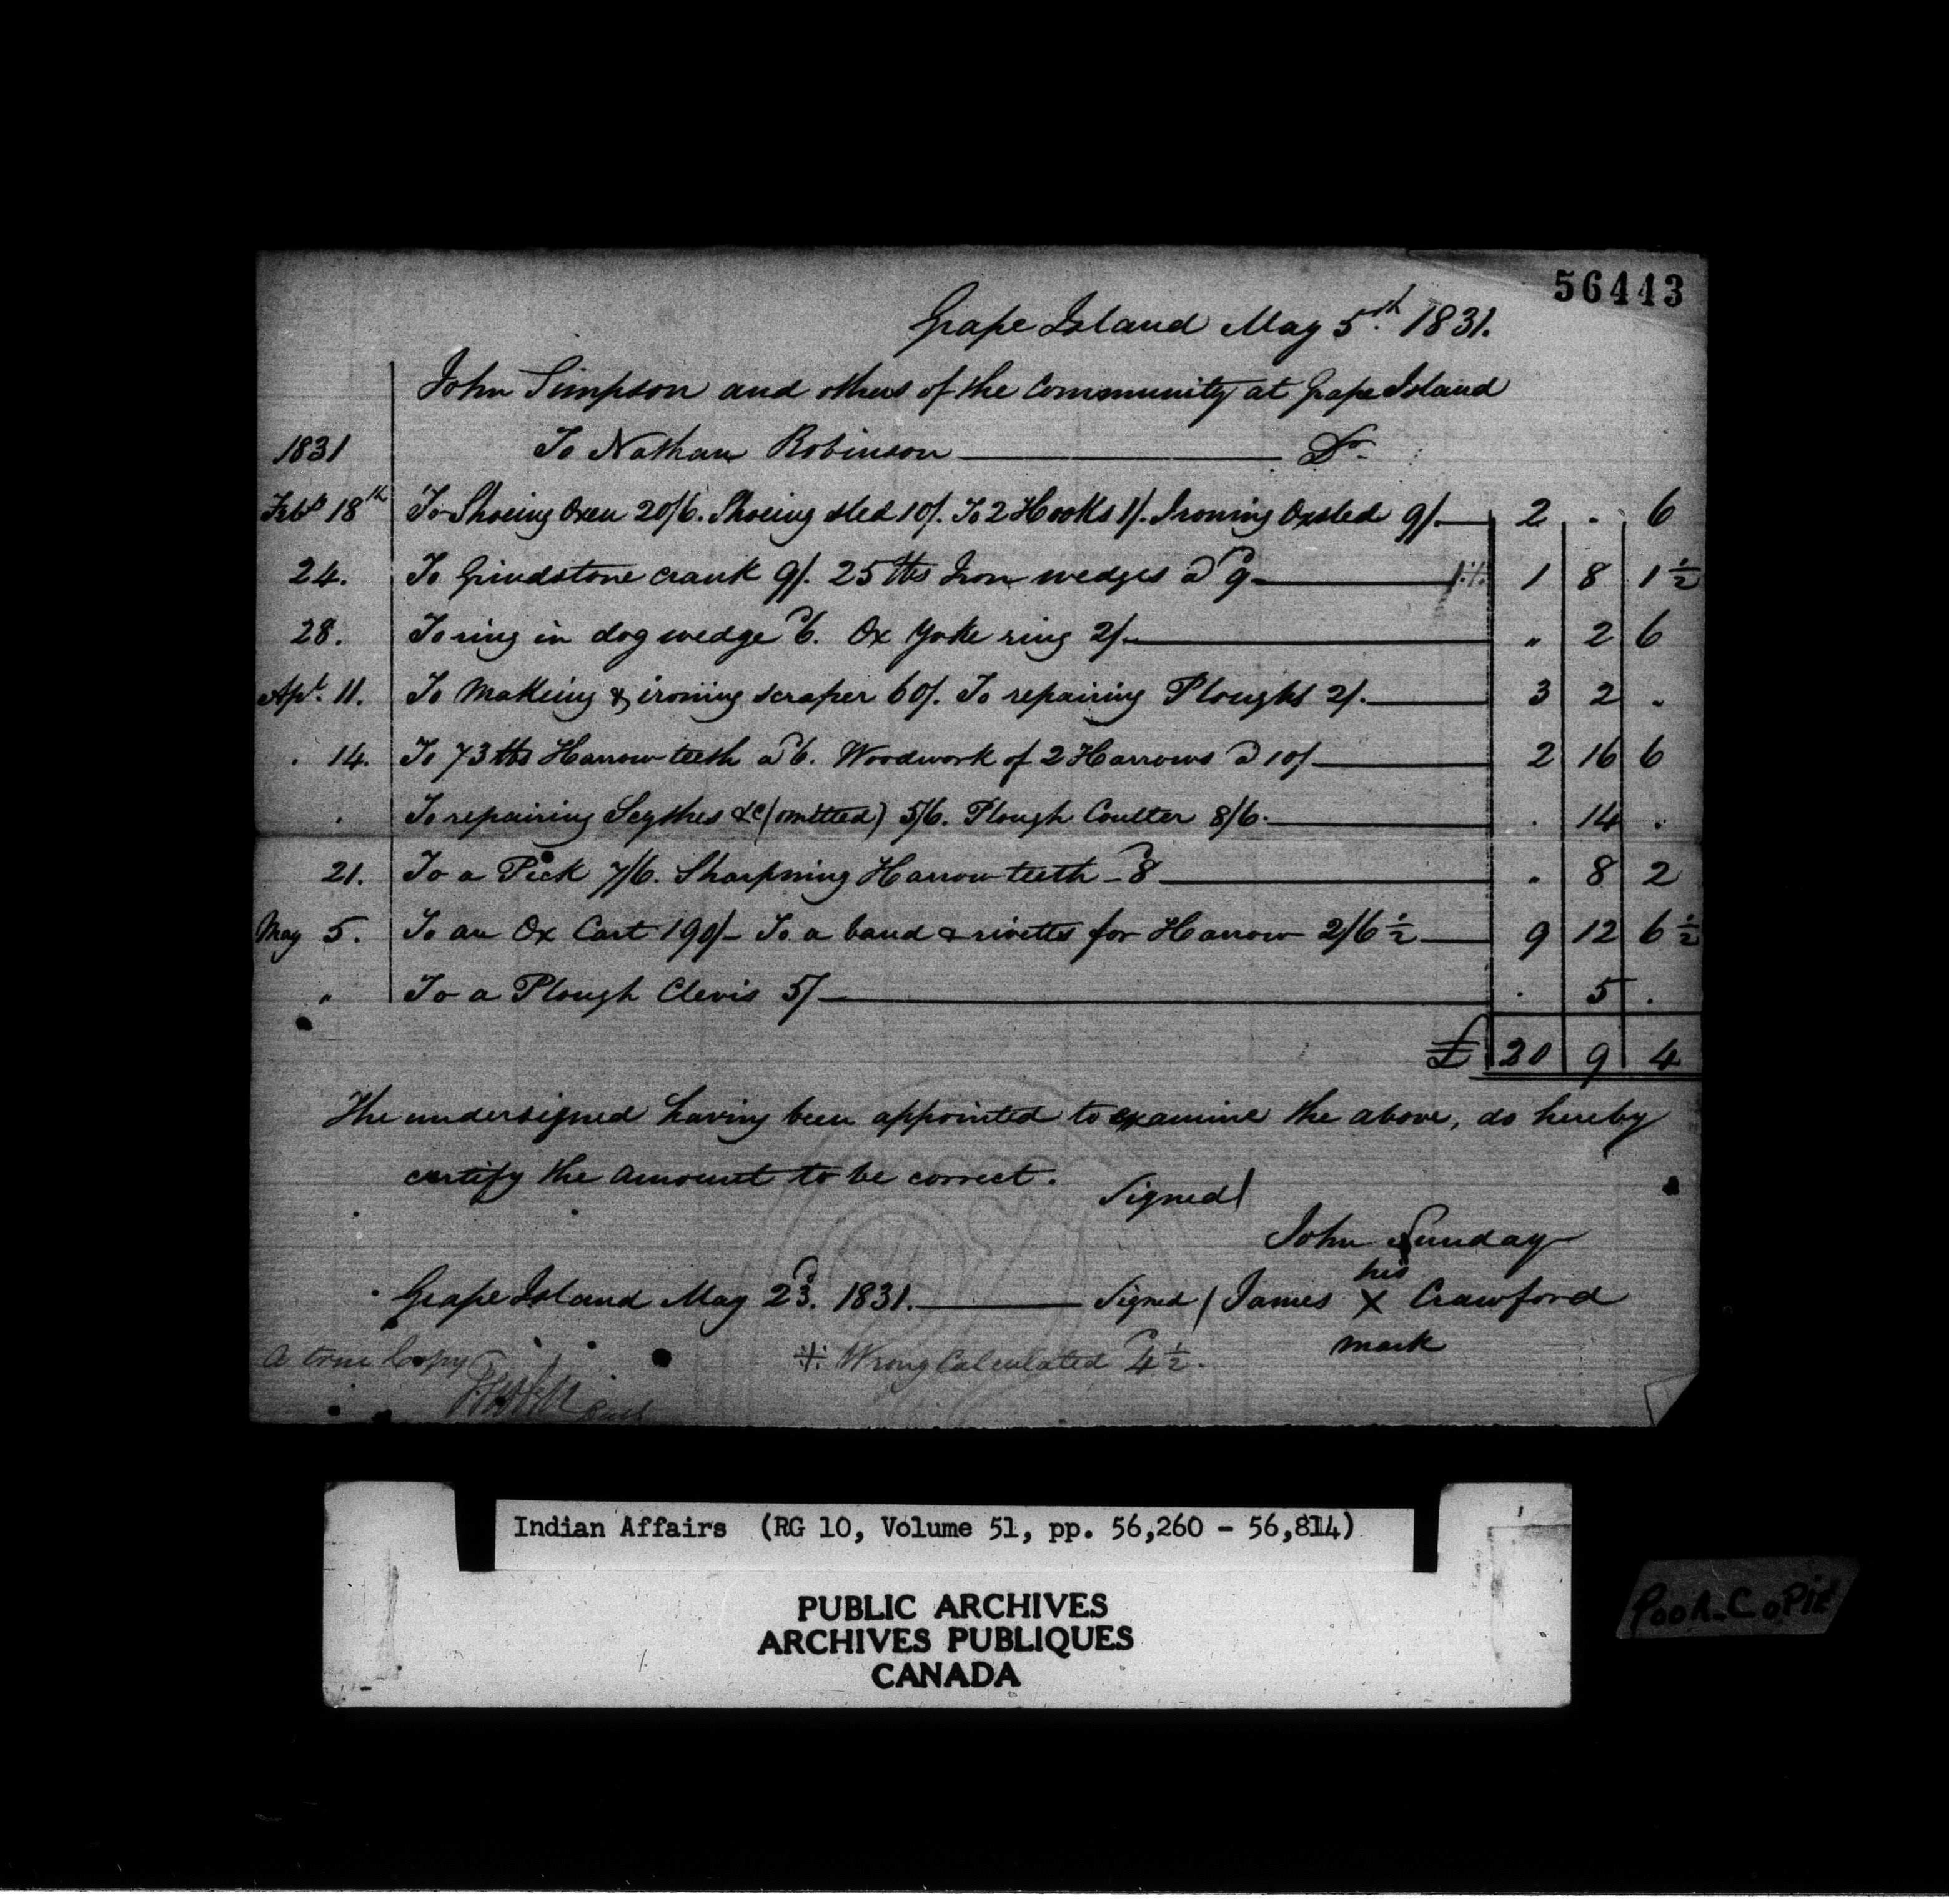 56443
Grape Island May 5th 1831.
John Simpson and others of the Community at Grape Island
1831 To Nathan Robinson — Dr.
Feby 18th To Shoeing Oxen 20/6. Shoeing sled 10/. To 2 Hooks 1/. Ironing Oxsled 9/. — 2 . 6
24. To Grindstone crank 9/. 25 lbs Iron wedges a 9d — 1 8 1½
28. To ring in dog wedge 6d. Ox Yoke ring 2/. — " 2 6
Apl. 11. To Making & ironing scraper 60/. To repairing Ploughs 2/. — 3 2 .
. 14. To 73 lbs Harrow teeth a 6d. Woodwork of 2 Harrows a 10/ — 2 16 6
. To repairing Scythes &c (omitted) 5/6. Plough Coulter 8/6. — . 14 .
21. To a Pick 7/6. Sharpning Harrow teeth - 8d — " 8 2
May 5. To an Ox Cart 190/- To a band & rivetts for Harrow 2/6½ — 9 12 6½
" To a Plough Clevis 5/ — . 5 .
£ 20 9 4
The undersigned having been appointed to examine the above, do hereby
certify the amount to be correct.
Signed/
John Sunday
his
Grape Island May 23d. 1831. — Signed / James X Crawford
mark
A true Copy
⁜ Wrong Calculated 4½d.
Indian Affairs (RG 10, Volume 51, pp. 56,260 - 56,814)
PUBLIC ARCHIVES
ARCHIVES PUBLIQUES
CANADA
POOR_COPIE